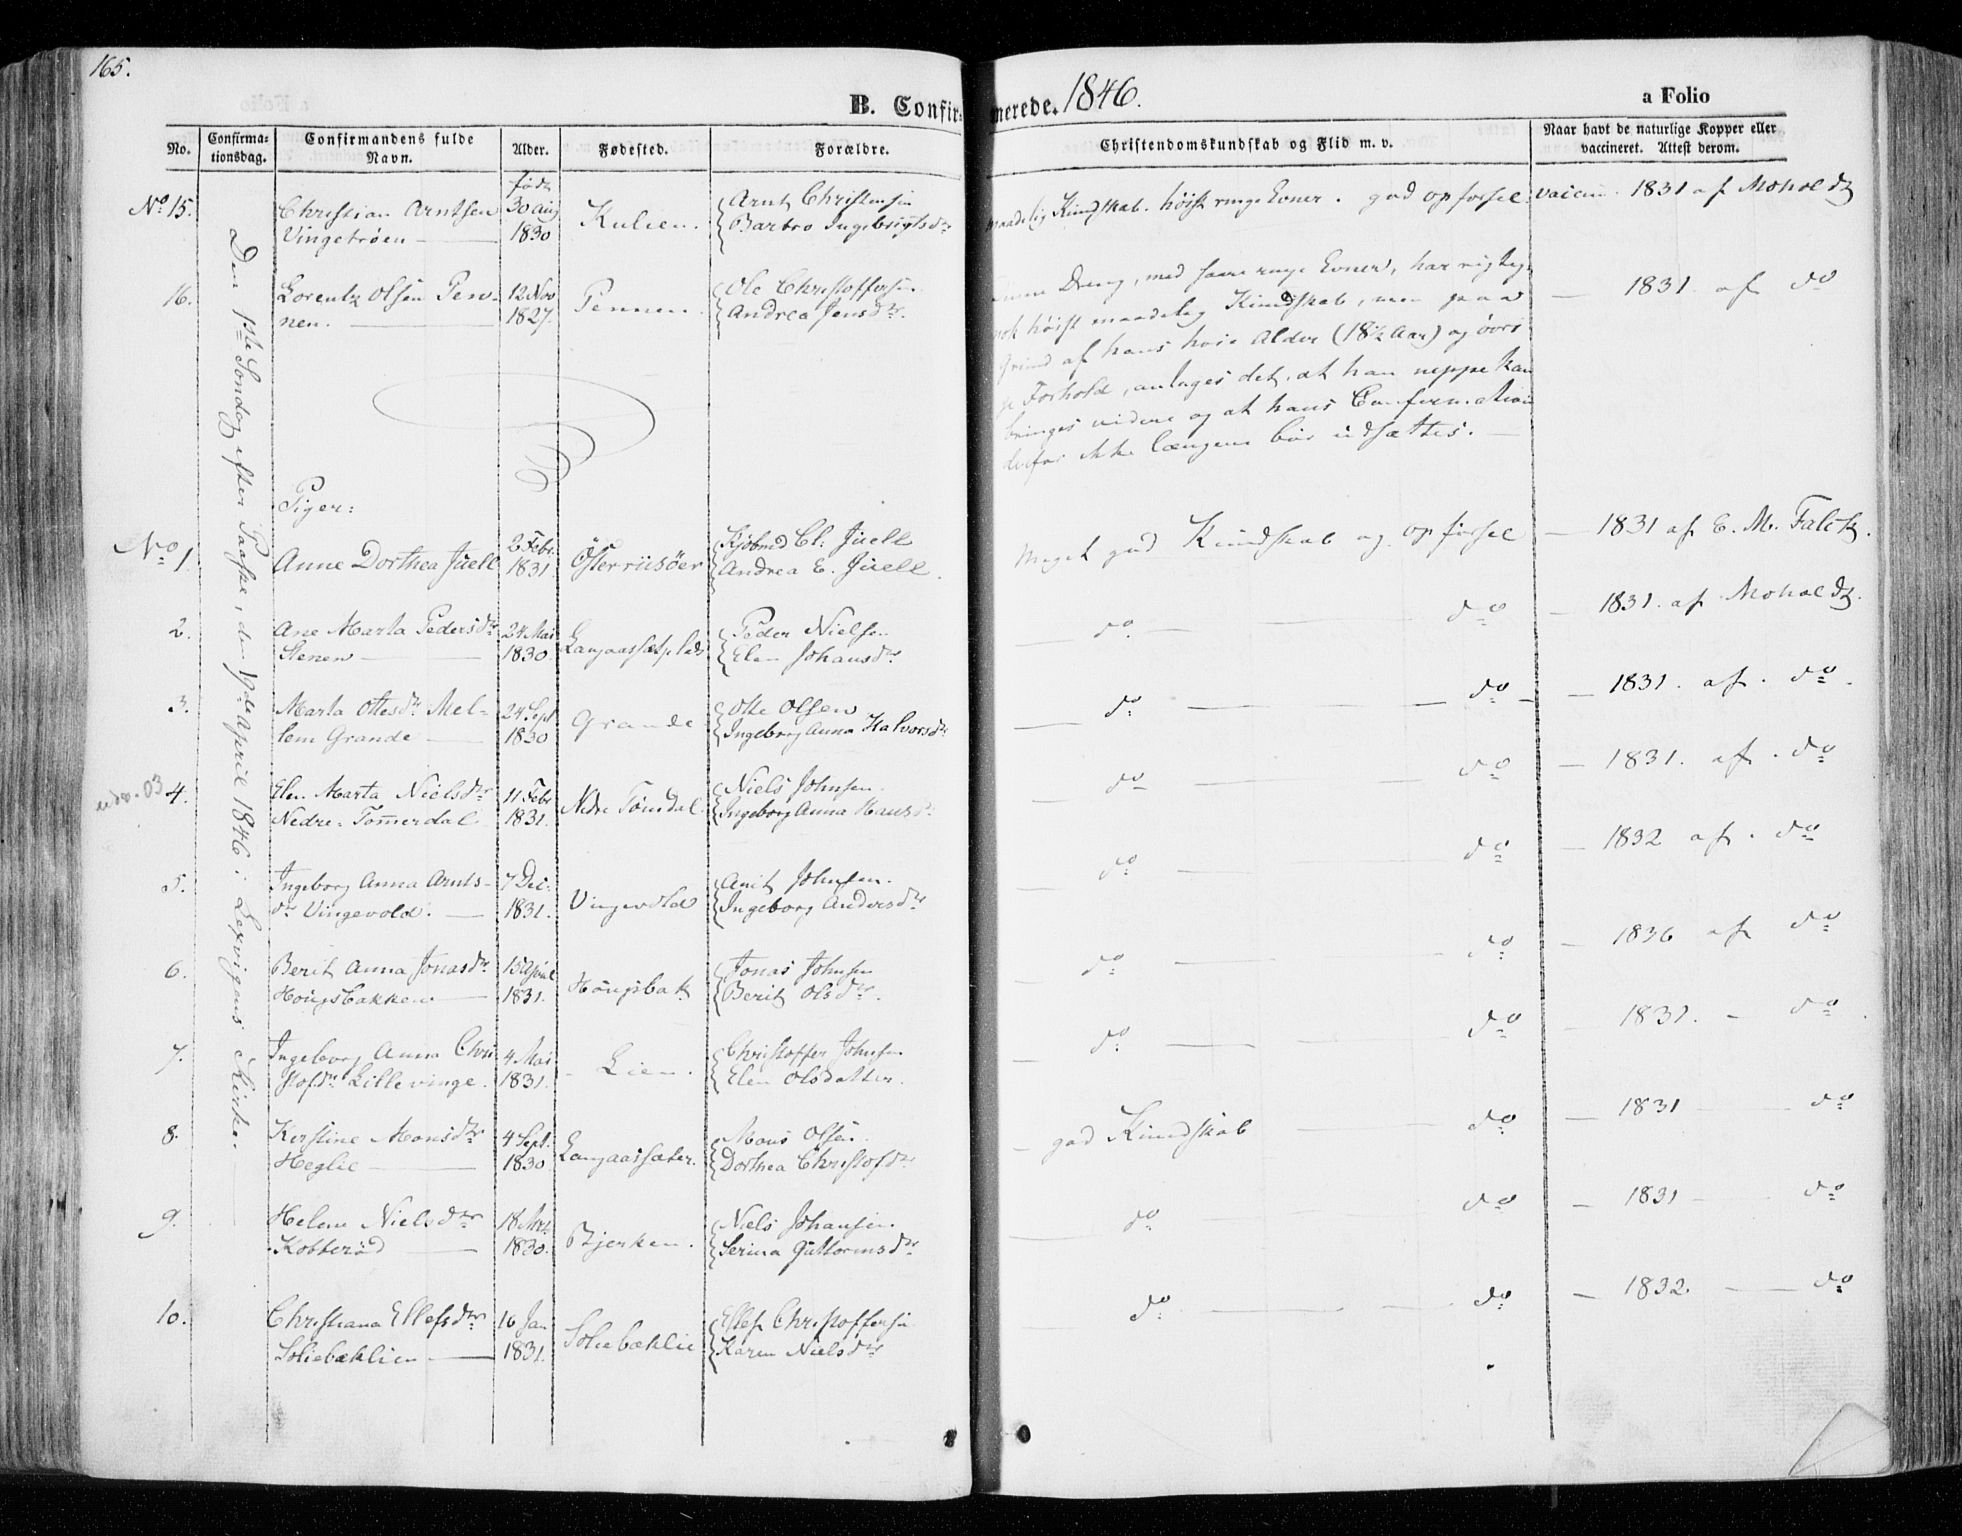 165.
B. Confirmerede. 1846.
a Folio
No.
Confirmationsdag.
Confirmandens fulde Navn.
Alder.
Fødested.
Forældre.
Christendomskundskab og Flid m. v.
Naar havt de naturlige Kopper eller
vaccineret. Attest derom.
Den 1ste Søndag efter Paaske, den 19de April 1846 i Lexvigens Kirke.
født
No 15.
Christian Arntsen
Vingetrøen
30 Aug
1830
Kulien.
Arnt Christensen
Barbro Ingebrigtsdr
maadelig Kundskab. høist ringe Evner. god opførsel
vaccin. 1831 af Moholdt
16.
Lorentz Olsen Pen-
nen.
12 Nov
1827.
Pennen.
Ole Christoffersen
Andrea Jensdr.
Dreng, med saare ringe Evner, har rigtig
nok høist maadelig Kundskab, men paa
Grund af hans høie Alder (18½ Aar) og øvri
ge Forhold, antages det, at han neppe kan
bringes videre og at hans Confirmation
derfor ikke længere bør udsættes.
1831 af do
Piger:
No 1
Anne Dorthea Juell
2 Febr.
1831
Österriisöer
Kjøbmd Cl: Juell
Andrea E. Juell.
Meget god Kundskab og opførsel
1831 af E. M. Falck.
2.
Ane Marta Pedersdr
Stenen
24 Mai
1830.
Langaassætplads
Peder Nielsen
Elen Johansdr
do. do
1831. af Moholdt.
3.
Marta Ottesdr Mel-
lem Grande
24 Sept
1830
Grande
Otte Olsen
Ingeborg Anna Halvorsdr
do do
1831. af. do.
udv. 03
4.
Elen Marta Nielsdr
Nedre Tømerdal
11 Febr
1831.
Nedre Tömdal.
Niels Johnsen.
Ingeborg Anna Hansdr
do do
1831. af. do
5.
Ingeborg Anna Arnts-
dr Vingevold.
7 Dec.
1831.
Vingevold
Arnt Johnsen.
Ingeborg Andersdr
do do
1832 af. do
6.
Berit Anna Jonasdr
Hougsbakken
15 April
1831.
Hougsbak
Jonas Johnsen
Berit Olsdr.
do do
1836 af do
7.
Ingeborg Anna Chri
stofdr Lillevinge.
4 Mai
1831.
Lien.
Christoffer Johnsen
Elen Olsdatter.
do do
1831. - do
8.
Kerstine Monsdr
Heglie
4 Sept.
1830
Langaassæter.
Mons Olsen.
Dorthea Christofdr
god Kundskab do
1831 do
9.
Helene Nielsdr
Kobberød
1830.
Bjerken.
Niels Johansen.
Serina Guttormsdr
do do
1831 do
10.
Christiana Ellefsdr
Soliebæklien
16 Jan
1831.
Soliebæklie
Ellef Christoffersen
Karen Nielsdr
do do
1832. do